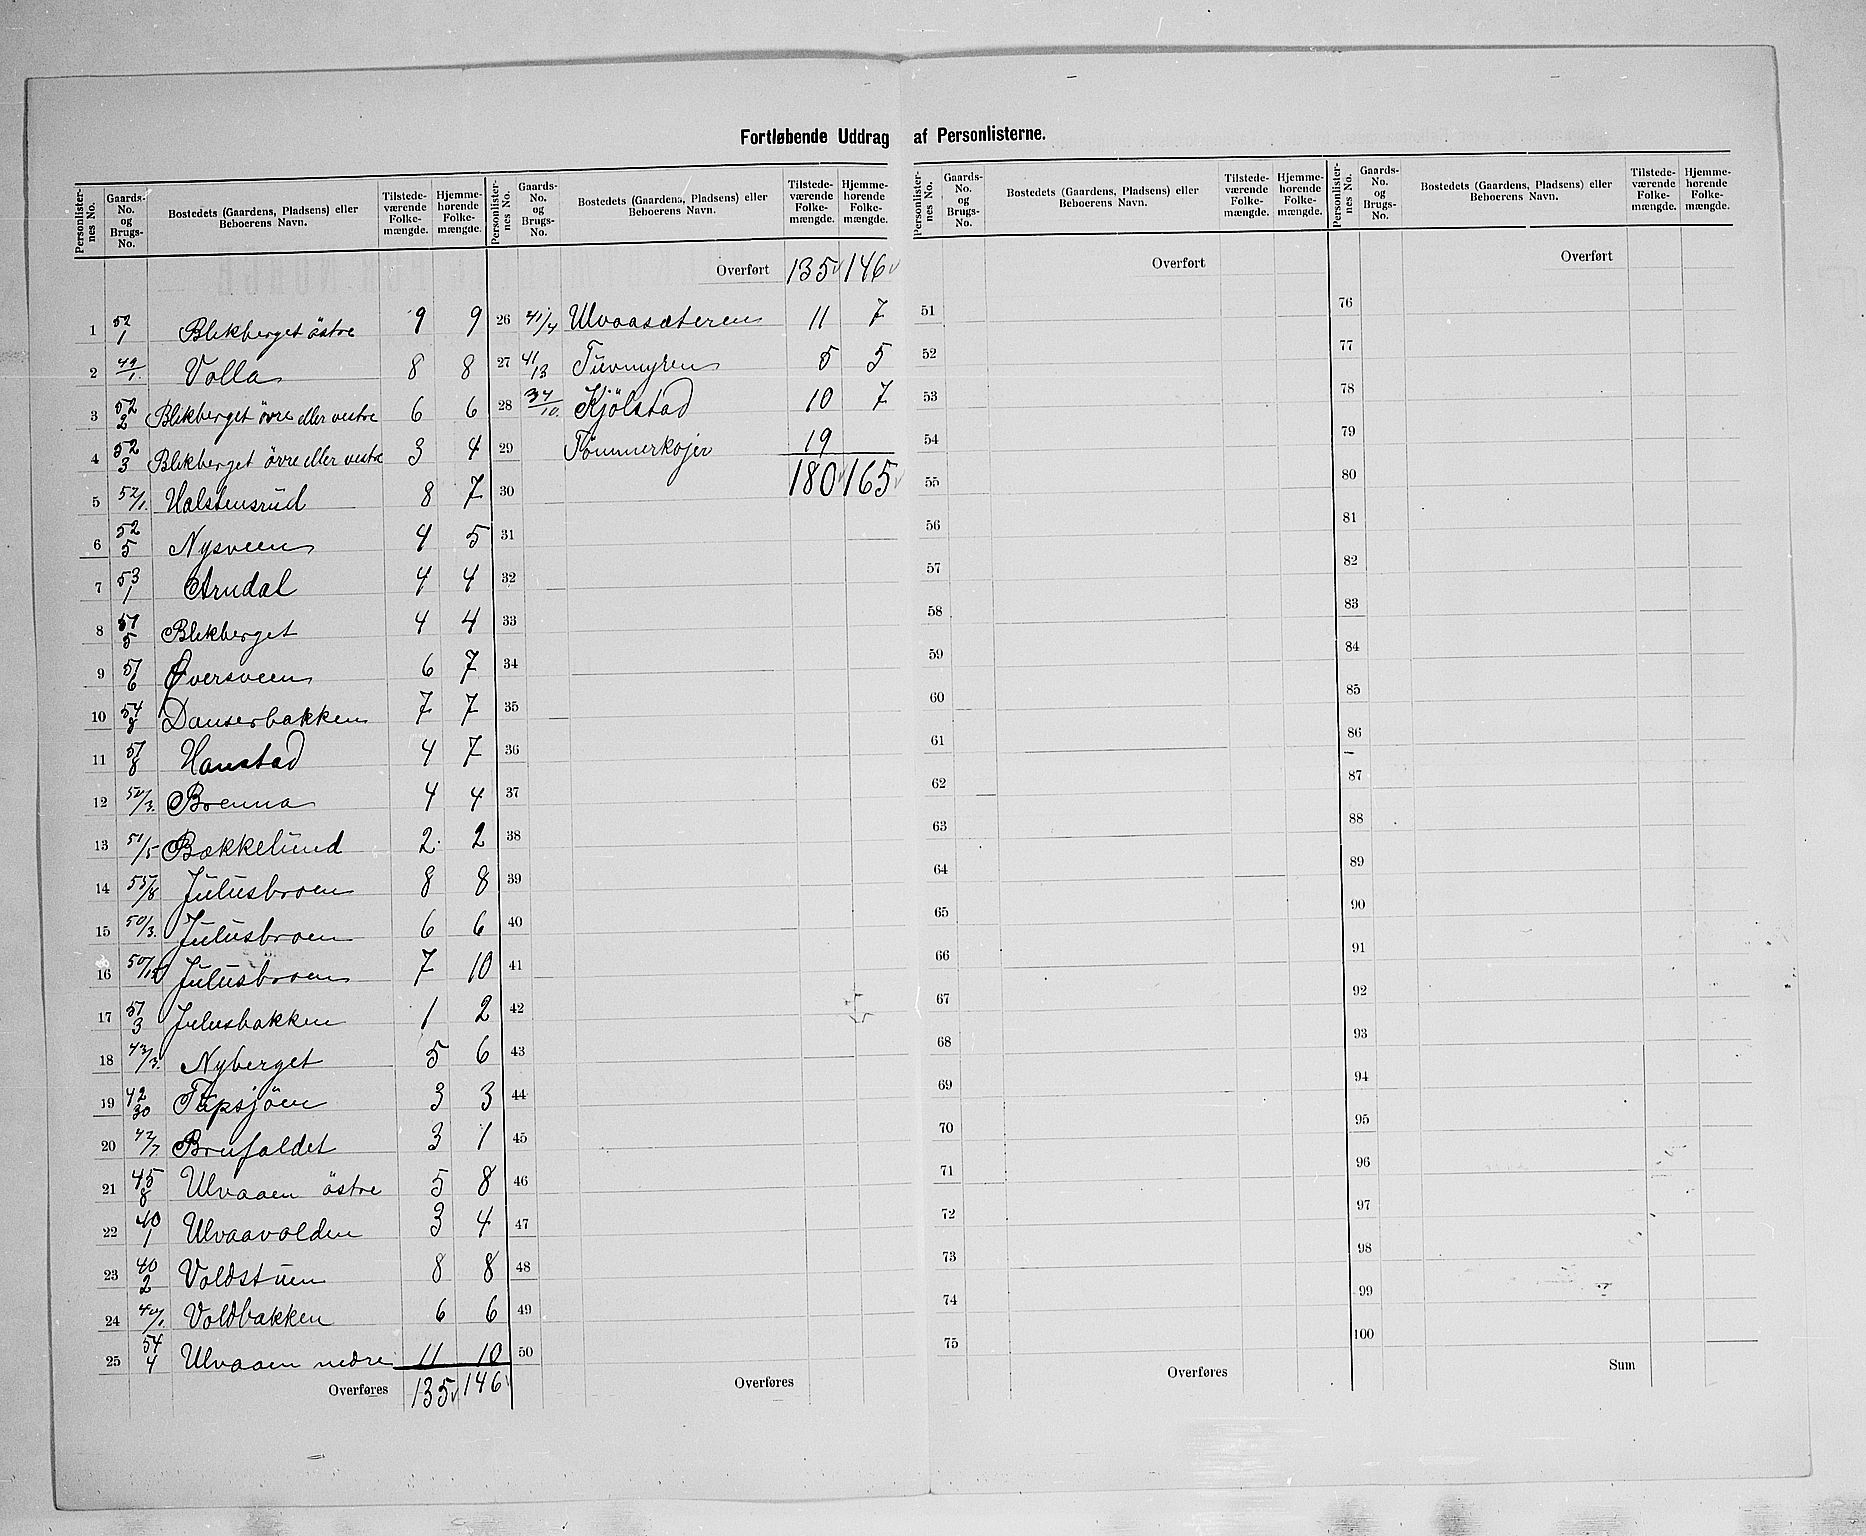 Fortløbende Uddrag af Personlisterne.
Personlisternes No. Gaards-No. og Brugs-No. Bostedets (Gaardens, Pladsens) eller Beboerens Navn. Tilstedeværende Folkemængde. Hjemmehørende Folkemængde.
1 52/1 Blekberget östre 9 9
2 49/1. Volla 8 8
3 52/2 Blekberget övre eller vestre 6 6
4 52/3 Blekberget övre eller vestre 3 4
5 52/1. Halstensrud 8 7
6 52/5 Nysveen 4 5
7 53/1 Arndal 4 4
8 51/5 Blekberget 4 4
9 51/6 Øversveen 6 7
10 54/8 Danserbakken 7 7
11 51/8 Hanstad 4 7
12 50/3. Brenna 4 4
13 51/5 Bækkelund 2. 2
14 55/8 Julusbroen 8 8
15 50/3. Julusbroen 6 6
16 50/15 Julusbroen 7 10
17 51/3 Julusbakken 1 2
18 43/3. Nyberget 5 6
19 42/30 Tapsjöen 3 3
20 42/7 Brufaldet 3 1
21 45/8 Ulvaaen östre 5 8
22 40/1 Ulvaavolden 3 4
23 40/2 Voldstuen 8 8
24 40/1. Voldbakken 6 6
25 54/4 Ulvaaen nedre 11 10
Overføres 135 146
Personlisternes No. Gaards-No. og Brugs-No. Bostedets (Gaardens, Pladsens) eller Beboerens Navn. Tilstedeværende Folkemængde. Hjemmehørende Folkemængde.
Overført 135 146
26 41/4 Ulvaasæteren 11 7
27 41/13 Tuvmyren 5 5
28 34/10. Kjölstad 10 7
29 Tömmerkojer 19
30 180 165
31
32
33
34
35
36
37
38
39
40
41
42
43
44
45
46
47
48
49
50
Overføres
Personlisternes No. Gaards-No. og Brugs-No. Bostedets (Gaardens, Pladsens) eller Beboerens Navn. Tilstedeværende Folkemængde. Hjemmehørende Folkemængde.
Overført
51
52
53
54
55
56
57
58
59
60
61
62
63
64
65
66
67
68
69
70
71
72
73
74
75
Overføres
Personlisternes No. Gaards-No. og Brugs-No. Bostedets (Gaardens, Pladsens) eller Beboerens Navn. Tilstedeværende Folkemængde. Hjemmehørende Folkemængde.
Overført
76
77
78
79
80
81
82
83
84
85
86
87
88
89
90
91
92
93
94
95
96
97
98
99
100
Sum